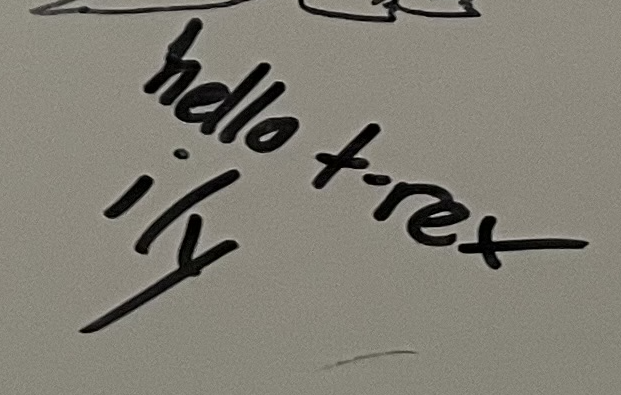 hello t-rex
ily